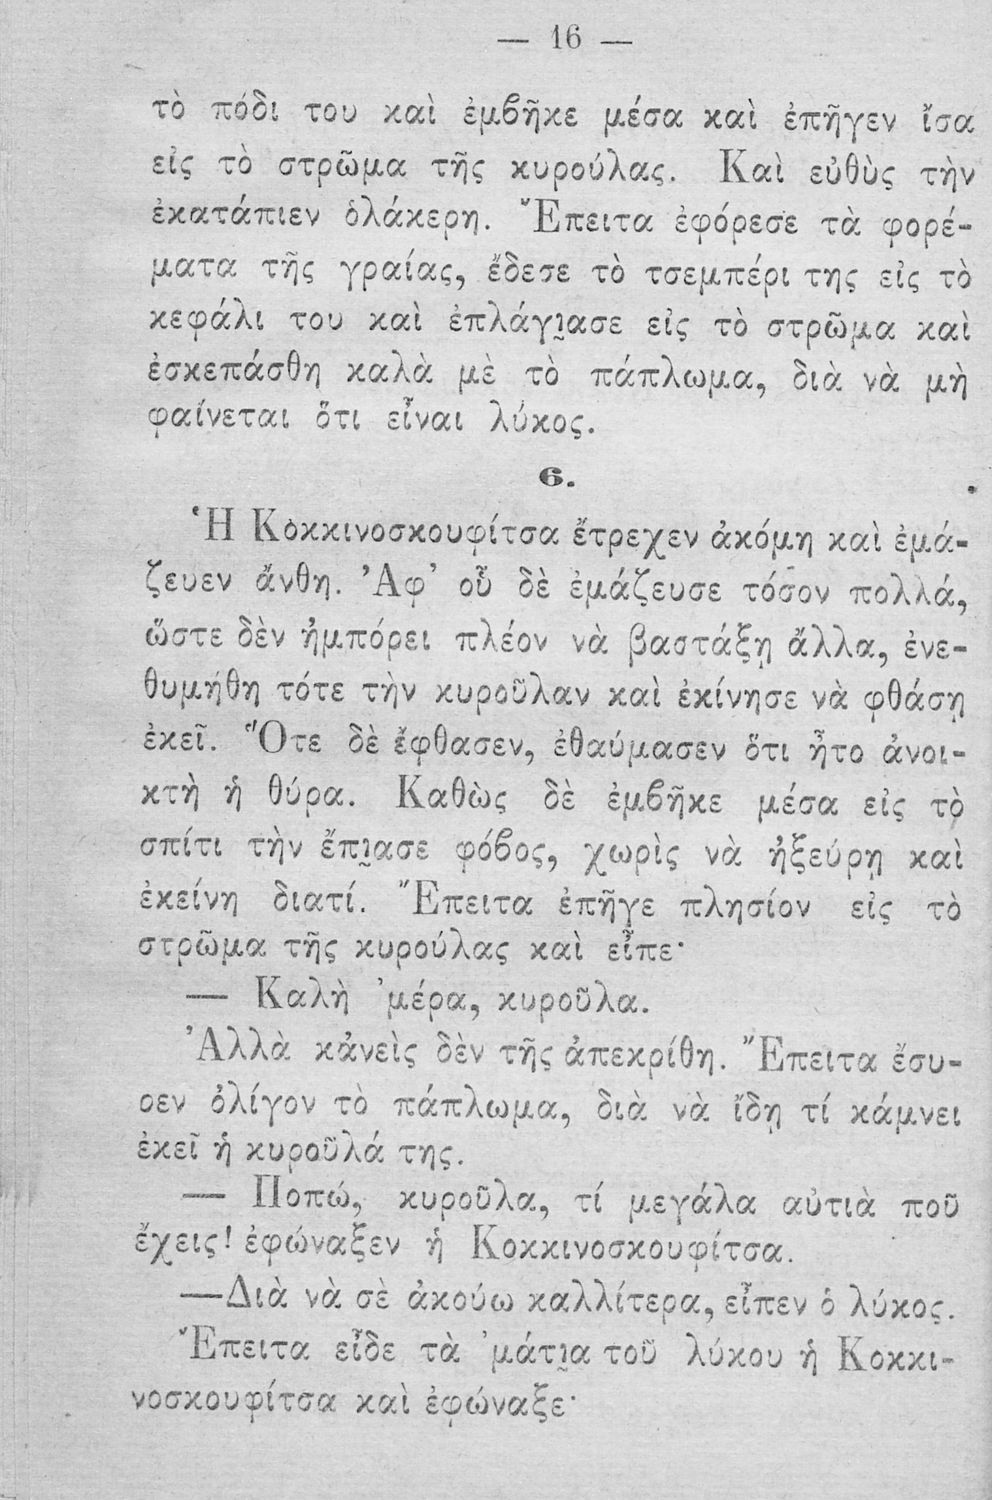 — 16 —
τὸ πόδι του καὶ ἐμβῆκε μέσα καὶ ἐπῆγεν ἴσα
εἰς τὸ στρῶμα τῆς κυρούλας. Καὶ εὐθὺς τὴν
ἐκατάπιεν ὁλάκερη. Ἔπειτα ἐφόρεσε τὰ φορέ-
ματα τῆς γραίας, ἔδεσε τὸ τσεμπέρι της εἰς τὸ
κεφάλι του καὶ ἐπλάγι̯ασε εἰς τὸ στρῶμα καὶ
ἐσκεπάσθη καλὰ μὲ τὸ πάπλωμα, διὰ νὰ μὴ
φαίνεται ὅτι εἶναι λύκος.
6.
Ἡ Κοκκινοσκουφίτσα ἔτρεχεν ἀκόμη καὶ ἐμά-
ζευεν ἄνθη. Ἀφ' οὗ δὲ ἐμάζευσε τόσον πολλά,
ὥστε δὲν ἠμπόρει πλέον νὰ βαστάξῃ ἄλλα, ἐνε-
θυμήθη τότε τὴν κυροῦλαν καὶ ἐκίνησε νὰ φθάσῃ
ἐκεῖ. Ὅτε δὲ ἔφθασεν, ἐθαύμασεν ὅτι ἦτο ἀνοι-
κτὴ ἡ θύρα. Καθὼς δὲ ἐμβῆκε μέσα εἰς τὸ
σπίτι τὴν ἔπι̯ασε φόβος, χωρὶς νὰ ἠξεύρῃ καὶ
ἐκείνη διατί. Ἔπειτα ἐπῆγε πλησίον εἰς τὸ
στρῶμα τῆς κυρούλας καὶ εἶπε·
— Καλὴ 'μέρα, κυροῦλα.
Ἀλλὰ κἀνεὶς δὲν τῆς ἀπεκρίθη. Ἔπειτα ἔσυ-
ρεν ὀλίγον τὸ πάπλωμα, διὰ νὰ ἴδῃ τί κάμνει
ἐκεῖ ἡ κυροῦλά της.
— Ποπώ, κυροῦλα, τί μεγάλα αὐτιὰ ποῦ
ἔχεις! ἐφώναξεν ἡ Κοκκινοσκουφίτσα.
—Διὰ νὰ σὲ ἀκούω καλλίτερα, εἶπεν ὁ λύκος.
Ἔπειτα εἶδε τὰ 'μάτι̯α τοῦ λύκου ἡ Κοκκι-
νοσκουφίτσα καὶ ἐφώναξε·